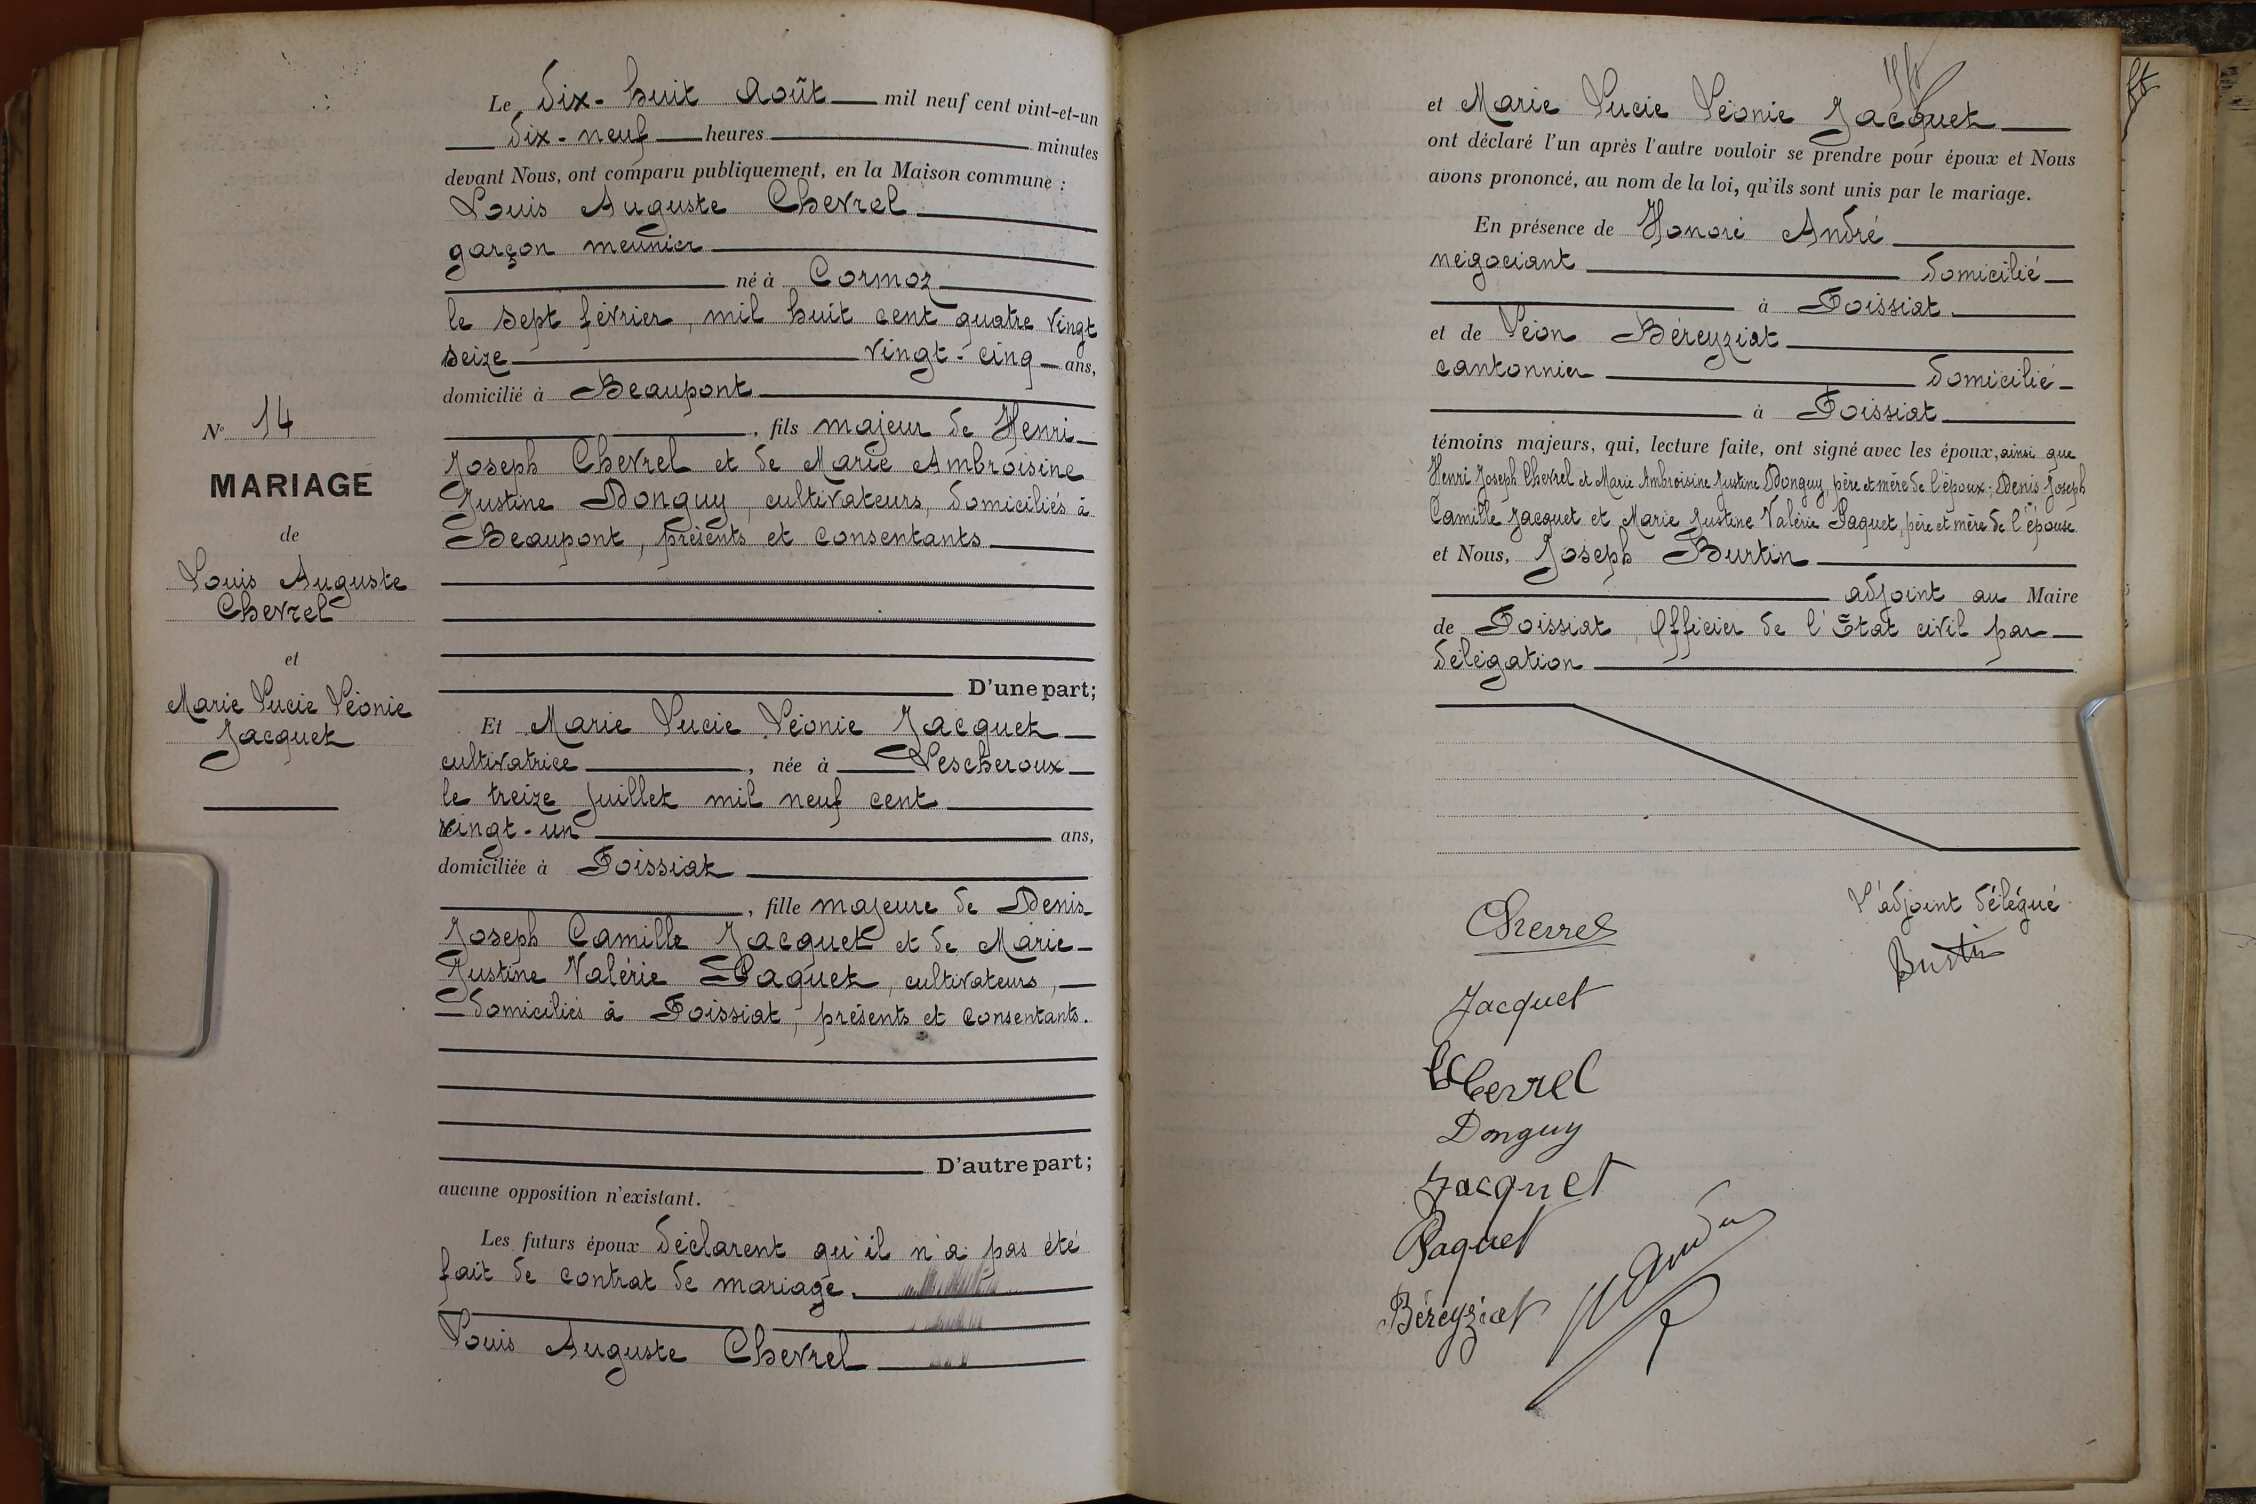 Le dix-huit août mil neuf cent vint-et-un
dix-neuf heures minutes
devant Nous, ont comparu publiquement, en la Maison commune :
Louis Auguste Chevrel
garçon meunier
né à Cormoz
le sept février, mil huit cent quatre vingt
seize vingt-cinq ans,
domicilié à Beaupont
, fils majeur de Henri
Joseph Chevrel et de Marie Ambroisine
Justine Donguy, cultivateurs, domiciliés à
Beaupont, présents et consentants
D'une part;
Et Marie Lucie Léonie Jacquet
cultivatrice, née à Lescheroux
le treize juillet mil neuf cent
vingt-un ans,
domiciliée à Foissiat
, fille majeure de Denis
Joseph Camille Jacquet et de Marie
Justine Valérie Paquet, cultivateurs,
domiciliés à Foissiat, présents et consentants.
D'autre part;
aucune opposition n'existant.
Les futurs époux déclarent qu'il n'a pas été
fait de contrat de mariage.
Louis Auguste Chevrel
N° 14
MARIAGE
de
Louis Auguste
Chevrel
et
Marie Lucie Léonie
Jacquet
et Marie Lucie Léonie Jacquet
ont déclaré l'un après l'autre vouloir se prendre pour époux et Nous
avons prononcé, au nom de la loi, qu'ils sont unis par le mariage.
En présence de Honoré André
négociant domicilié
à Foissiat
et de Léon Béreyziat
cantonnier domicilié
à Foissiat
témoins majeurs, qui, lecture faite, ont signé avec les époux, ainsi que
Henri Joseph Chevrel et Marie Ambroisine Justine Donguy, père et mère de l'époux; Denis Joseph
Camille Jacquet et Marie Justine Valérie Paquet, père et mère de l'épouse
et Nous, Joseph Burtin
adjoint au Maire
de Foissiat, Officier de l'Etat civil par
délégation
L'adjoint délégué
Burtin
Chevrel
Jacquet
Chevrel
Donguy
Jacquet
Paquet
Béreyziat
H André